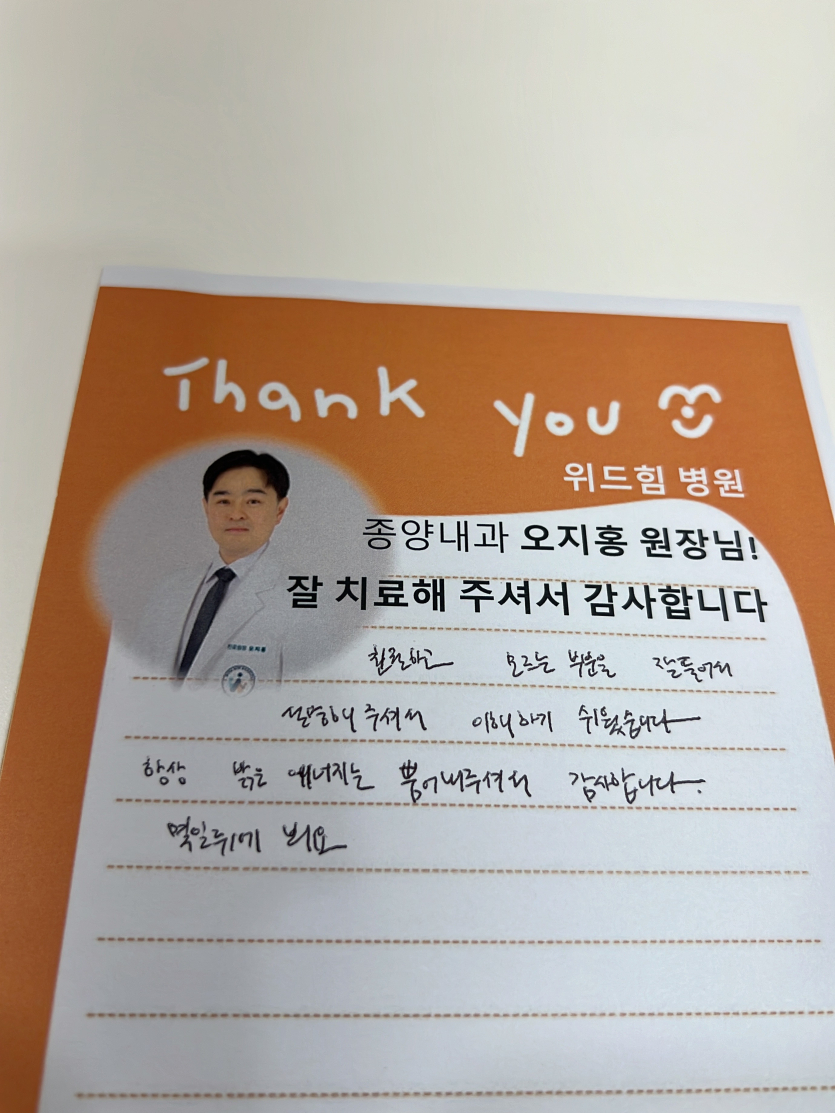 Thank you
위드힘 병원
종양내과 오지홍 원장님!
잘 치료해 주셔서 감사합니다
친절하고 모르는 부분을 잘들어서
설명해 주셔서 이해하기 쉬웠습니다
항상 밝은 에너지는 뿜어내주셔서 감사합니다.
몇일뒤에 봐요